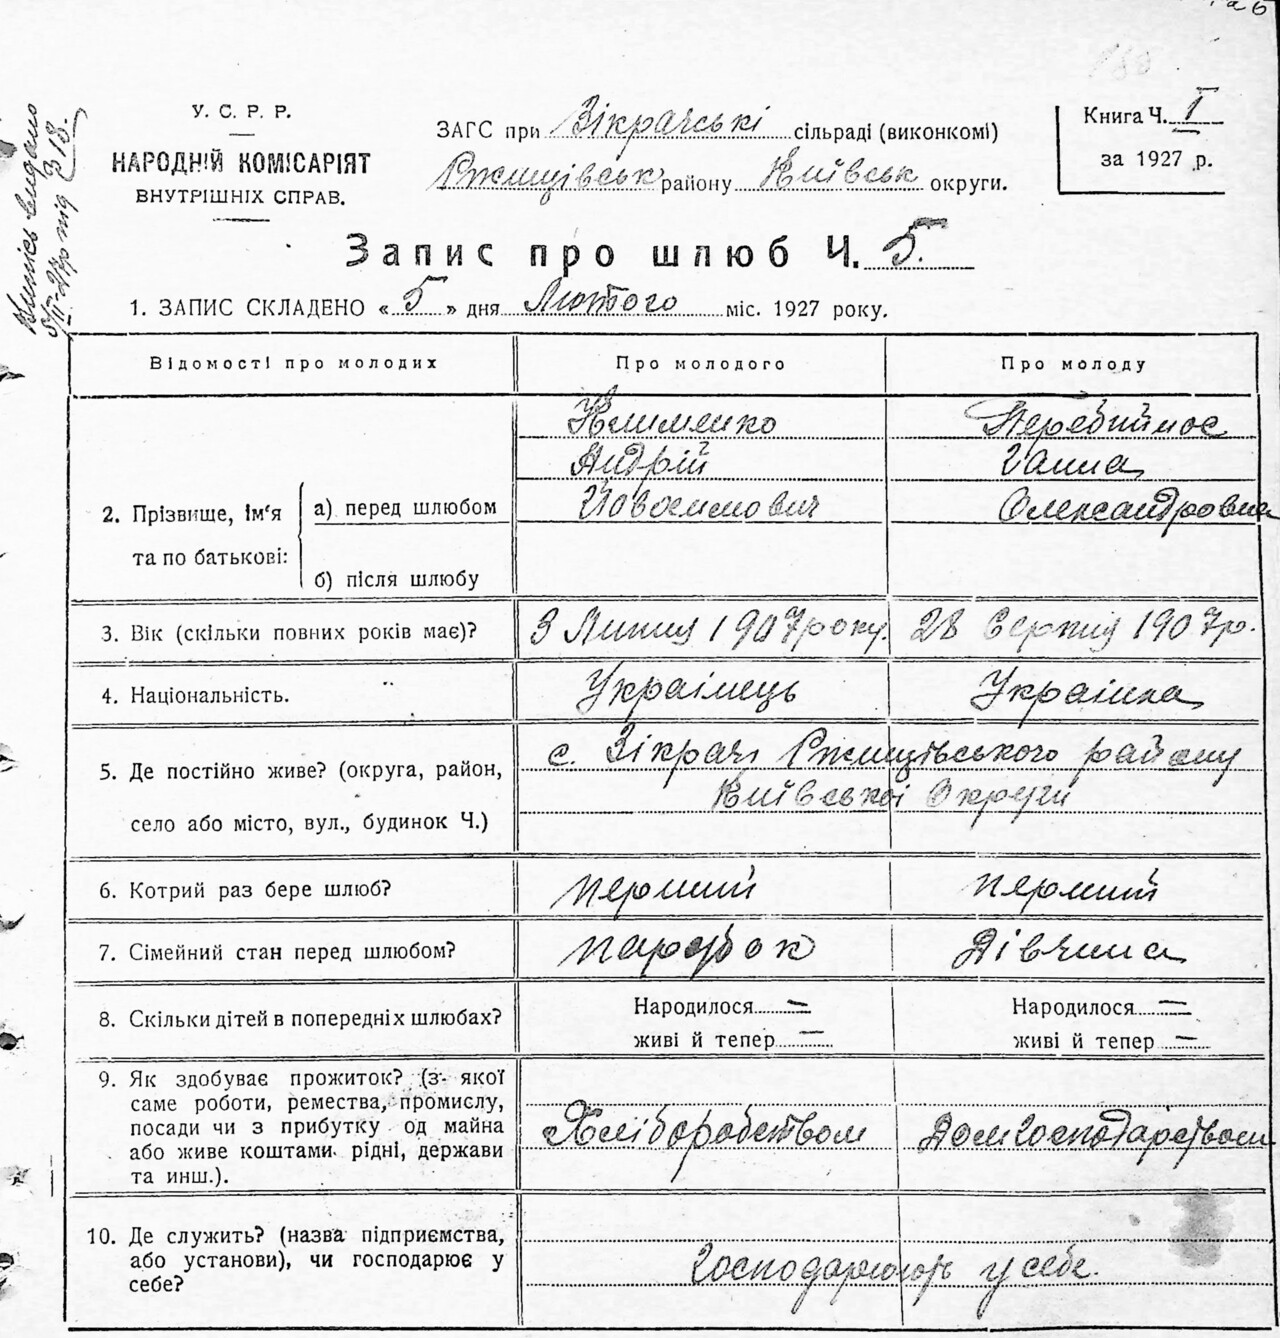 У. С. Р. Р.
НАРОДНІЙ КОМІСАРІЯТ
ВНУТРІШНІХ СПРАВ.
ЗАГС при Зікрачські сільраді (виконкомі)
Ржищівськ району Київськ округи.
Книга Ч. I
за 1927 р.
Випись видано
318.
Запис про шлюб Ч. 5.
1. ЗАПИС СКЛАДЕНО « 5 » дня Лютого міс. 1927 року.
Відомості про молодих Про молодого Про молоду
2. Прізвище, ім'я та по батькові:
а) перед шлюбом
б) після шлюбу
Клименко
Андрій
Перебийнос
Ганна
Олександровна
3. Вік (скільки повних років має)? 3 Липця 1907 року. 28 Серпня 1907 р.
4. Національність. Українець Українка
5. Де постійно живе? (округа, район,
село або місто, вул., будинок Ч.)
с. Зікрачі Ржищівського району
Київської Округи
6. Котрий раз бере шлюб? перший перший
7. Сімейний стан перед шлюбом? парубок Дівчина
8. Скільки дітей в попередніх шлюбах?
Народилося = Народилося =
живі й тепер — живі й тепер —
9. Як здобуває прожиток? (з- якої
саме роботи, ремества, промислу,
посади чи з прибутку од майна
або живе коштами рідні, держави
та инш.).
Хліборобством Домгосподарством
10. Де служить? (назва підприємства,
або установи), чи господарює у
себе?
Господарюють у себе.